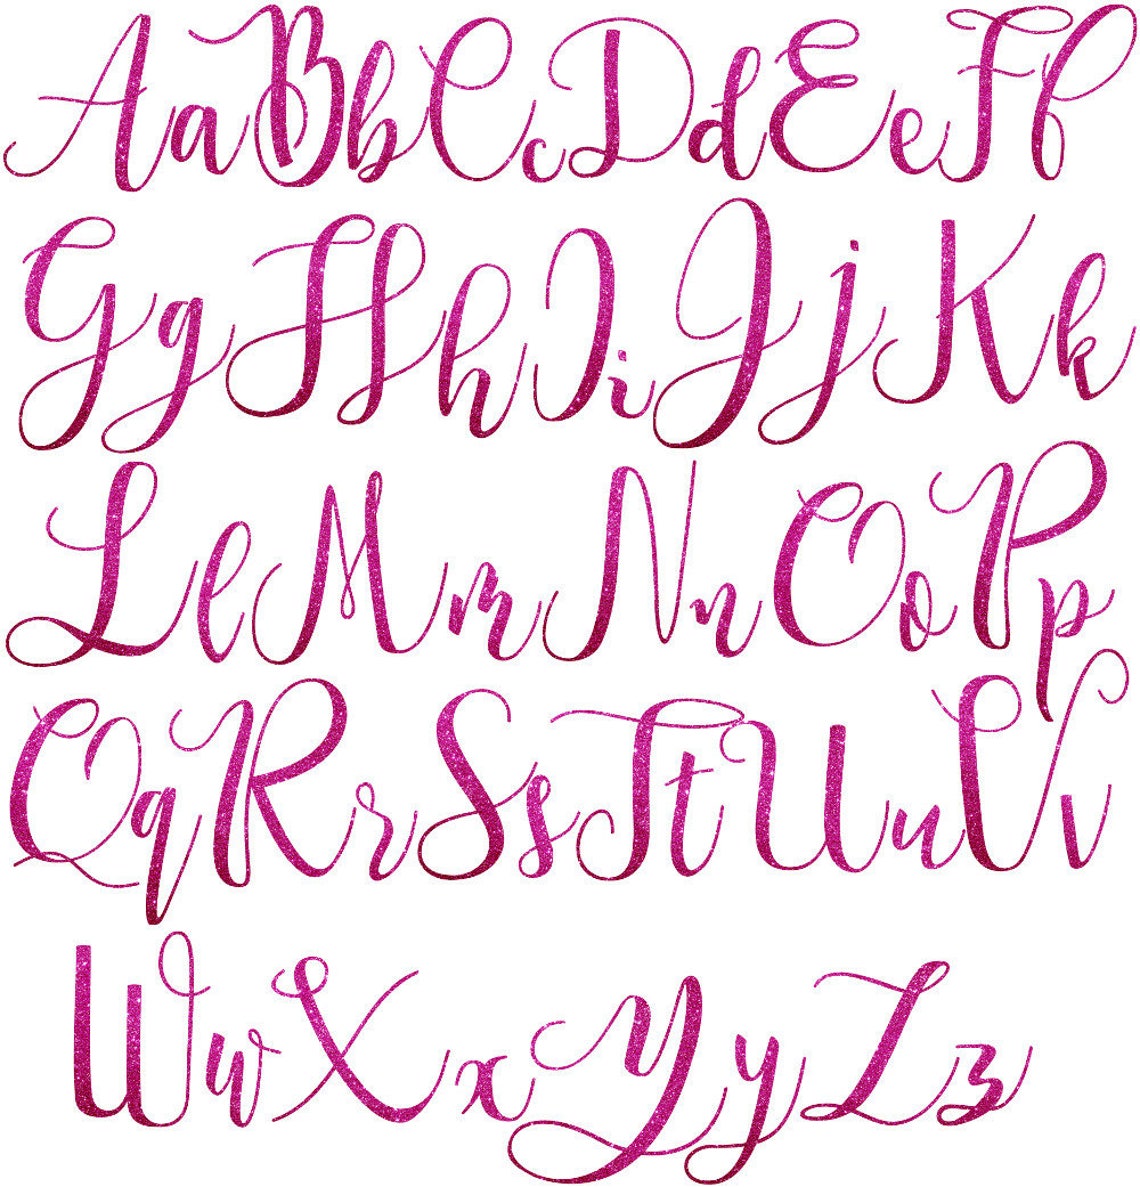 AaBbCcDdEeFf
GgHhIiJjKk
LlMmNnOoPp
QqRrSsTtUuVv
WwXxYyZz